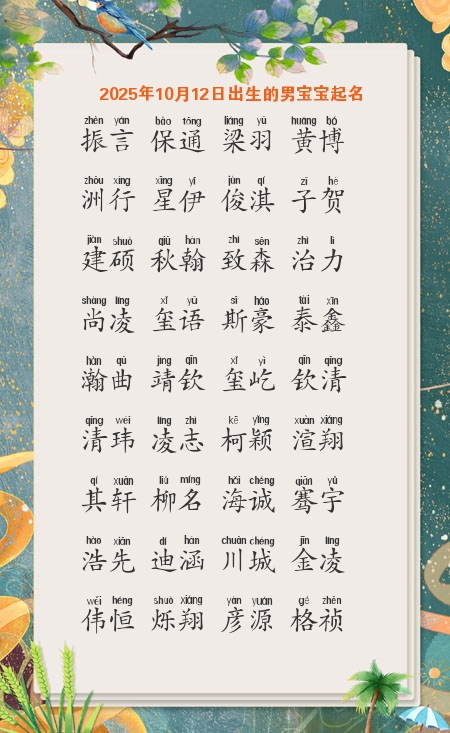 2025年10月12日出生的男宝宝起名
zhèn yán bǎo tōng liáng yǔ huáng bó
振言 保通 梁羽 黄博
zhōu xíng xīng yī jùn qí zǐ hè
洲行 星伊 俊淇 子贺
jiàn shuò qiū hàn zhì sēn zhì lì
建硕 秋翰 致森 治力
shàng líng xǐ yǔ sī háo tài xīn
尚凌 玺语 斯豪 泰鑫
hàn qǔ jìng qīn xǐ yì qīn qīng
瀚曲 靖钦 玺屹 钦清
qīng wěi líng zhì kē yǐng xuàn xiáng
清玮 凌志 柯颖 渲翔
qí xuān liǔ míng hǎi chéng qiān yǔ
其轩 柳名 海诚 骞宇
hào xiān dí hán chuān chéng jīn líng
浩先 迪涵 川城 金凌
wěi héng shuò xiáng yàn yuán gé zhēn
伟恒 烁翔 彦源 格祯